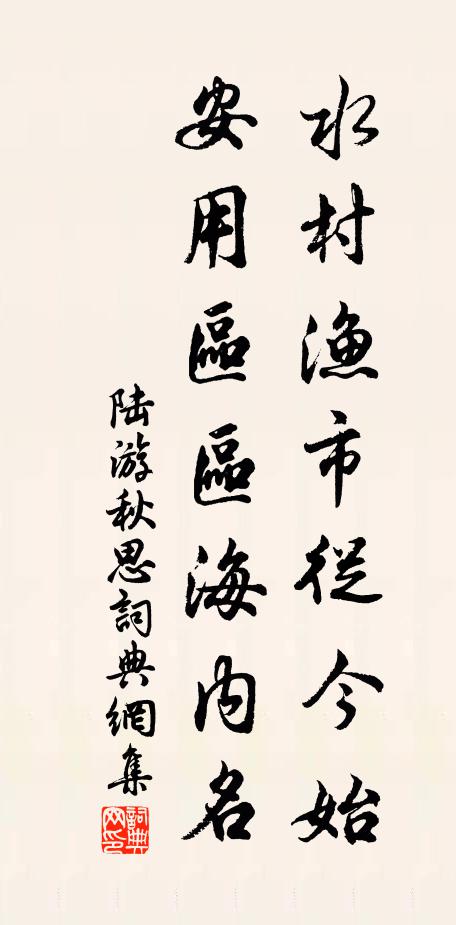 水村漁市從今始
安用區區海内名
陆游秋思詞典網集
詞典網印